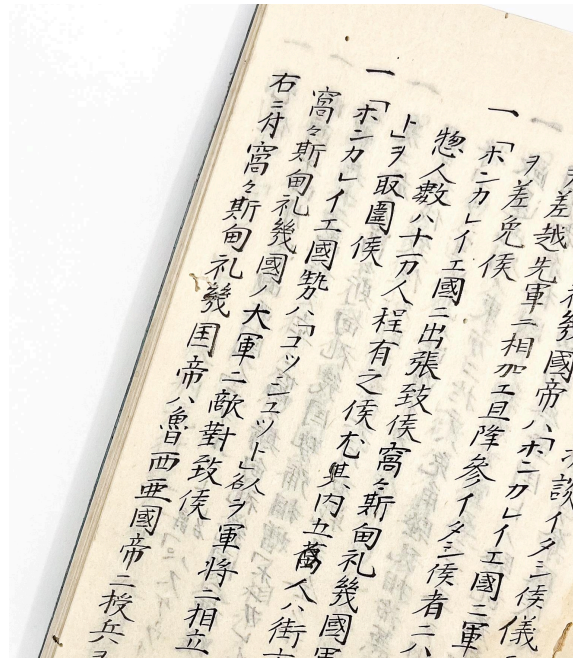 談イタシ候儀
幾國帝ハ「ホンカレイエ國ニ軍
差越先軍ニ相加エ且降參イタシ候者ニハ
ヲ差免候
一「ホンカレイエ國ニ出張致候窩々斯甸礼幾國軍
惣人數ハ十一万人程有之候尤其内五萬人ハ街
ト」ヲ取圍候
一「ホンカレイエ國勢ハ「コツシュツト」人ヲ軍将ニ相立
窩々斯甸礼幾國ノ大軍ニ敵對致候
右ニ付窩々斯甸礼幾国帝ハ魯西亜國帝ニ授兵ヲ